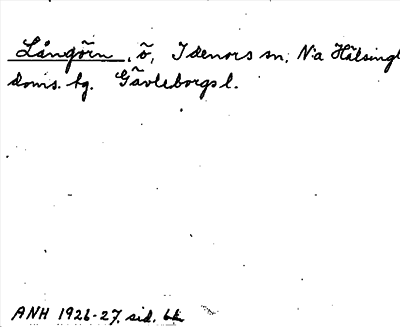 Långörn, ö, Idenors sn, N:a Hälsingl
doms. hg. Gävleborgs l.
ANH 1926-27. sid.